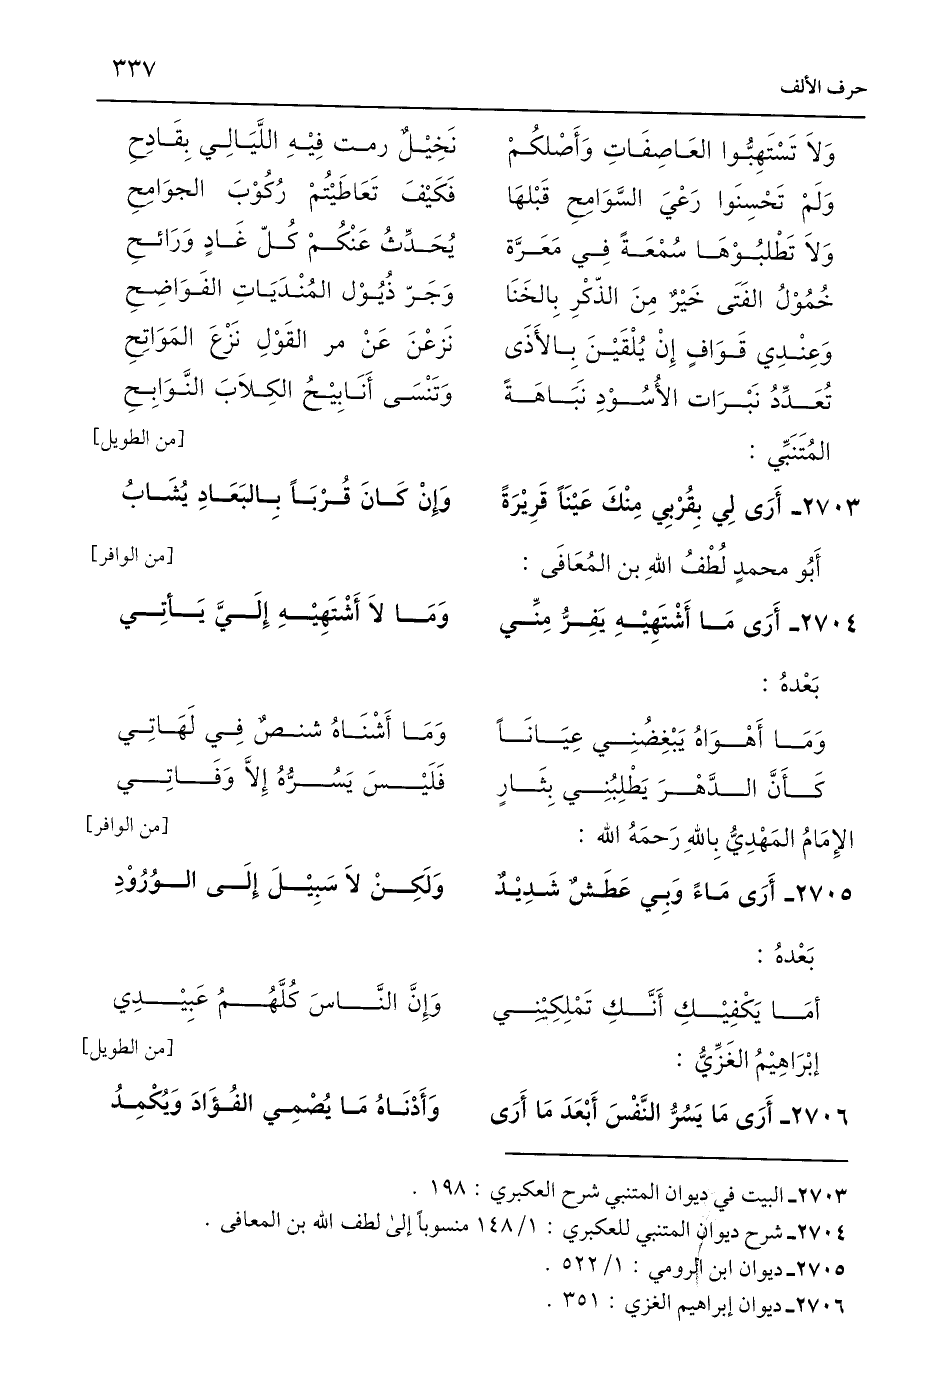 حرف الألف ٣٣٧
وَلاَ تَسْتَهِبُّوا العَاصِفَاتِ وَأَصْلكُمْ نَخِيْلٌ رمت فِيْهِ اللَّيَالِي بِقَادِحِ
وَلَمْ تَحْسِنُوا رَعْيَ السَّوَامِحِ قَبْلهَا فَكَيْفَ تَعَاطَيْتُمْ رُكُوْبَ الجوَامِحِ
وَلاَ تَطْلبُوْهَا سُمْعَةً فِي مَعَرَّة يُحَدِّثُ عَنْكُمْ كُلّ غَادٍ وَرَائحِ
خُمُوْلُ الفَتَى خَيْرٌ مِنَ الذّكْرِ بِالخَنَا وَجَرّ ذُيُوْل المُنْدَيَاتِ الفَوَاضِحِ
وَعِنْدِي قَوَافٍ إنْ يُلْقَيْنَ بِالأَذَى نَزعْنَ عَنْ مر القَوْلِ نَزْعَ المَوَاتِحِ
تُعَدِّدُ نَبْرَات الأُسُوْدِ نَبَاهَةً وَتَنْسَى أَنَابِيْحُ الكِلاَبَ النَّوَابِحِ
المُتَنَبِّي : [من الطويل]
٢٧٠٣ـ أَرَى لِي بِقُرْبِي مِنْكَ عَيْنَاً قَرِيْرَةً وَإِنْ كَانَ قُرْبَاً بِالبَعَادِ يُشَابُ
أَبُو محمدٍ لُطْفُ اللهِ بن المُعَافَى : [من الوافر]
٢٧٠٤ـ أَرَى مَا أَشْتَهِيْهِ يَفِرُّ مِنِّي وَمَا لاَ أَشْتَهِيْهِ إِلَيَّ يَأتِي
بَعْدهُ :
وَمَا أَهْوَاهُ يَبْغِضُنِي عِيَانَاً وَمَا أَشْنَاهُ شنصٌ فِي لَهَاتِي
كَأَنَّ الدَّهْرَ يَطْلِبُنِي بِثَارٍ فَلَيْسَ يَسُرُّهُ إِلاَّ وَفَاتِي
الإِمَامُ المَهْدِيُّ بِاللهِ رَحمَهُ الله : [من الوافر]
٢٧٠٥ـ أَرَى مَاءً وَبِي عَطَشٌ شَدِيْدٌ وَلَكِنْ لاَ سَبِيْلَ إِلَى الوُرُوْدِ
بَعْدهُ :
أمَا يَكْفِيْكِ أَنَّكِ تَمْلِكِيْنِي وَإِنَّ النَّاسَ كُلَّهُمُ عَبِيْدِي
إبْرَاهِيْمُ الغَزِّيُّ : [من الطويل]
٢٧٠٦ـ أَرَى مَا يَسُرُّ النَّفْسَ أَبْعَدَ مَا أَرَى وَأَدْنَاهُ مَا يُصْمِي الفُؤَادَ وَيُكْمِدُ
٢٧٠٣ـ البيت في ديوان المتنبي شرح العكبري : ١٩٨ .
٢٧٠٤ـ شرح ديوان المتنبي للعكبري : ١/ ١٤٨ منسوباً إلى لطف الله بن المعافى .
٢٧٠٥ـ ديوان ابن الرومي : ١/ ٥٢٢ .
٢٧٠٦ـ ديوان إبراهيم الغزي : ٣٥١ .